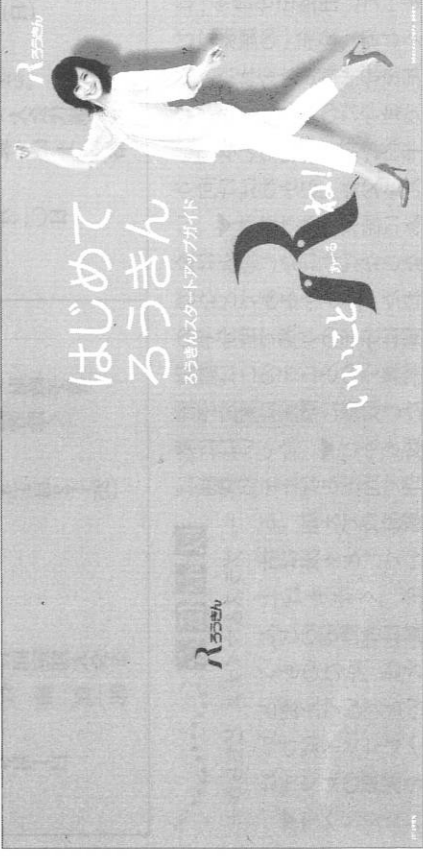 ろうきん
はじめて
ろうきん
ろうきんスタートアップガイド
いいこと
あ〜る
ね!
ろうきん